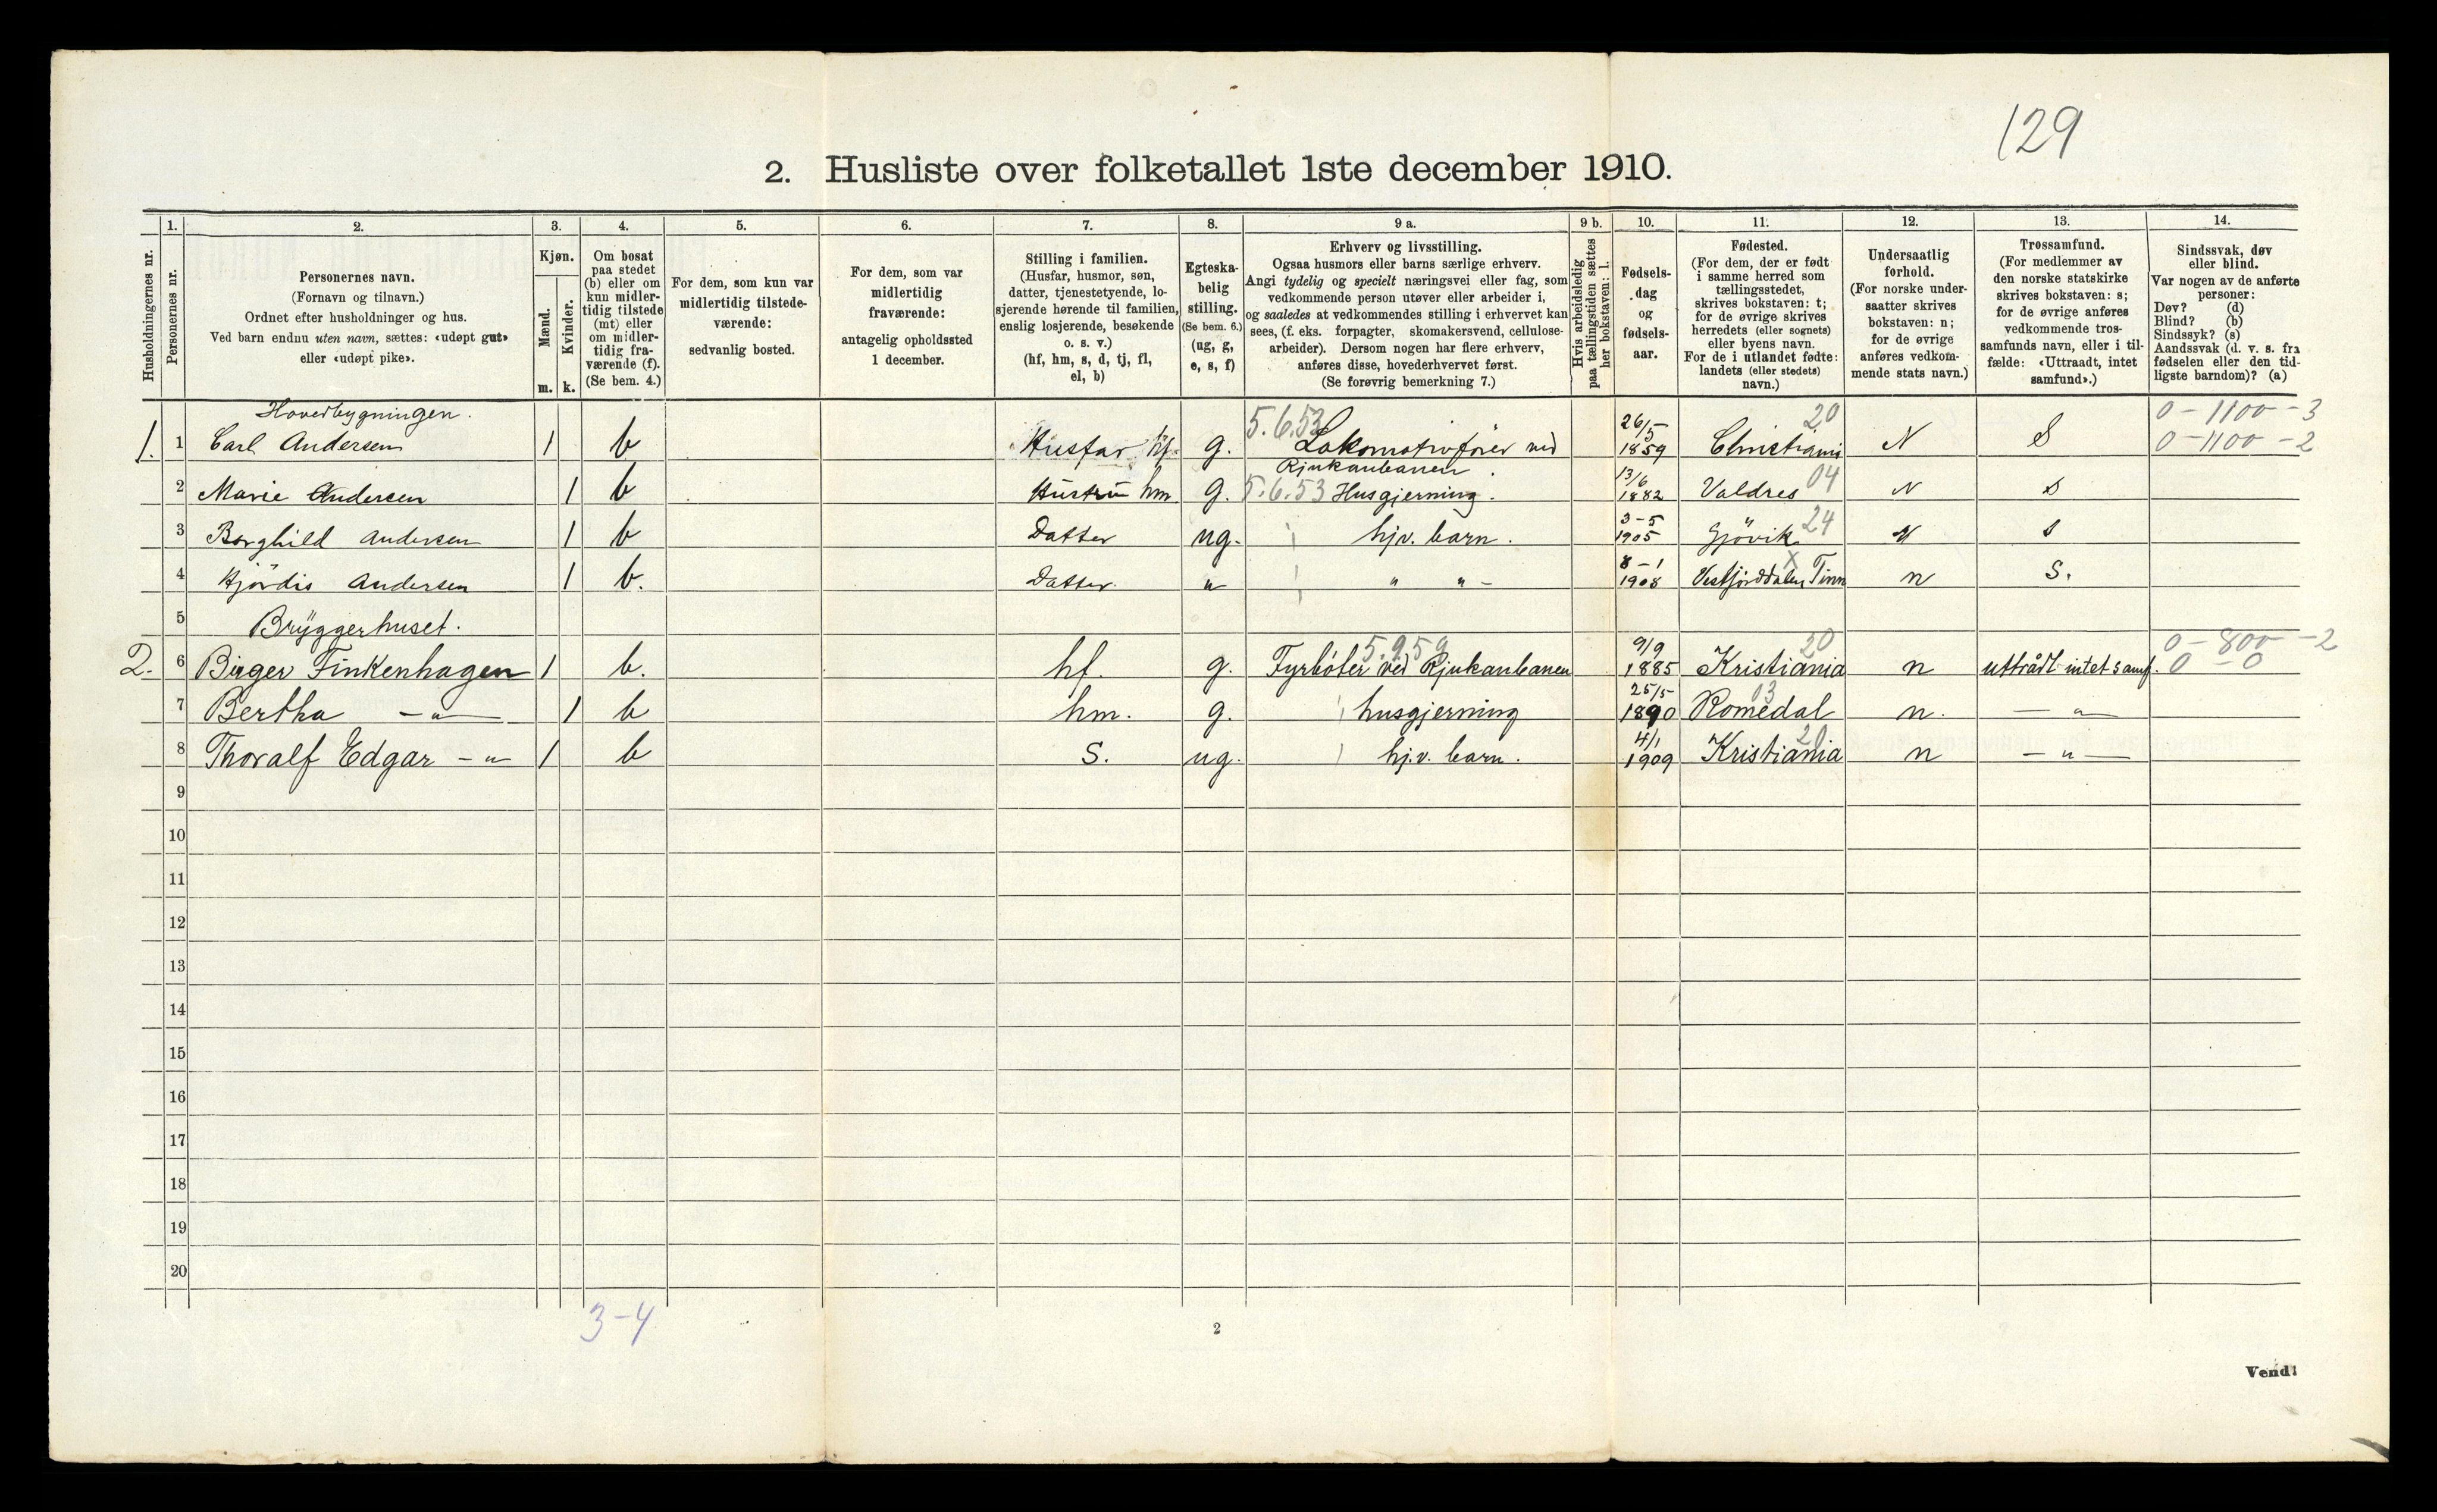 129
2. Husliste over folketallet 1ste december 1910.
1. 2. 3. 4. 5. 6. 7. 8. 9 a. 9 b. 10. 11. 12. 13. 14.
Husholdningernes nr.
Personernes nr.
Personernes navn.
(Fornavn og tilnavn.)
Ordnet efter husholdninger og hus.
Ved barn endnu uten navn, sættes: «udøpt gut»
eller «udøpt pike».
Kjøn.
Mænd.
Kvinder.
m. k.
Om bosat
paa stedet
(b) eller om
kun midler-
tidig tilstede
(mt) eller
om midler-
tidig fra-
værende (f).
(Se bem. 4.)
For dem, som kun var
midlertidig tilstede-
værende:
sedvanlig bosted.
For dem, som var
midlertidig
fraværende:
antagelig opholdssted
1 december.
Stilling i familien.
(Husfar, husmor, søn,
datter, tjenestetyende, lo-
sjerende hørende til familien,
enslig losjerende, besøkende
o. s. v.)
(hf, hm, s, d, tj, fl,
el, b)
Egteska-
belig
stilling.
(Se bem. 6.)
(ug, g,
e, s, f)
Erhverv og livsstilling.
Ogsaa husmors eller barns særlige erhverv.
Angi tydelig og specielt næringsvei eller fag, som
vedkommende person utøver eller arbeider i,
og saaledes at vedkommendes stilling i erhvervet kan
sees, (f. eks. forpagter, skomakersvend, cellulose-
arbeider). Dersom nogen har flere erhverv,
anføres disse, hovederhvervet først.
(Se forøvrig bemerkning 7.)
Hvis arbeidsledig
paa tællingstiden sættes
her bokstaven: l.
Fødsels-
dag
og
fødsels-
aar.
Fødested.
(For dem, der er født
i samme herred som
tællingsstedet,
skrives bokstaven: t;
for de øvrige skrives
herredets (eller sognets)
eller byens navn.
For de i utlandet fødte:
landets (eller stedets)
navn.)
Undersaatlig
forhold.
(For norske under-
saatter skrives
bokstaven: n;
for de øvrige
anføres vedkom-
mende stats navn.)
Trossamfund.
(For medlemmer av
den norske statskirke
skrives bokstaven: s;
for de øvrige anføres
vedkommende tros-
samfunds navn, eller i til-
fælde: «Uttraadt, intet
samfund».)
Sindssvak, døv
eller blind.
Var nogen av de anførte
personer:
Døv? (d)
Blind? (b)
Sindssyk? (s)
Aandssvak (d. v. s. fra
fødselen eller den tid-
ligste barndom)? (a)
Hovedbygningen. 5.6.53 26/5 20 0-1100-3
1. 1 Carl Andersen 1 b Husfar hf. g. Lokomotivfører ved 1859 Christiania N S 0-1100-2
Rjukanbanen. 13/6 04
2 Marie Andersen 1 b Hustru hm. g. 5.6.53 Husgjerning. 1882 Valdres N S
3-5 24
3 Borghild Andersen 1 b Datter ug. hjv. barn. 1905 Gjövik N S
8-1 x
4 Hjördis Andersen 1 b. Datter " " "- 1908 Vestfjorddalen Tinn n S.
5 Bryggerhuset.
5.9.59 9/9 20 0-800-2
2. 6 Birger Finkenhagen 1 b. hf. g. Fyrbøter ved Rjukanbanen 1885 Kristiania n uttrådt intet samf. 0-0
25/5 03
7 Bertha -"- 1 b hm. g. husgjerning 1890 Romedal n. -"-
4/1 20
8 Thoralf Edgar -"- 1 b S. ug. hjv. barn. 1909 Kristiania n -"-
9
10
11
12
13
14
15
16
17
18
19
20
3-4
2
Vend!